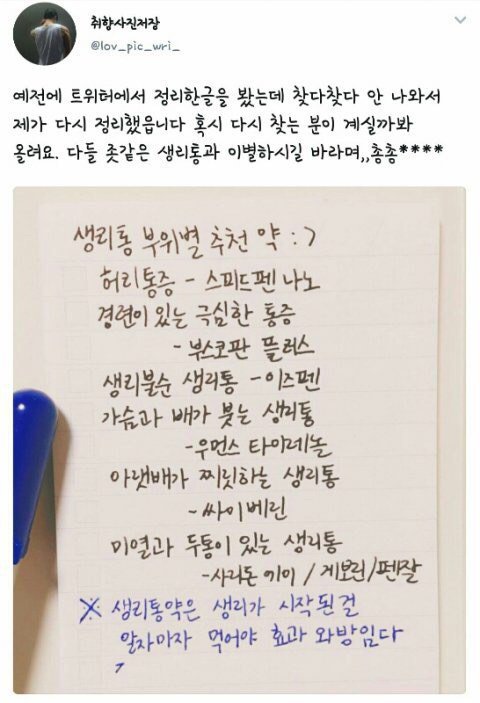 취향사진저장
@lov_pic_wri_
예전에 트위터에서 정리한글을 봤는데 찾다찾다 안 나와서
제가 다시 정리했읍니다 혹시 다시 찾는 분이 계실까봐
올려요. 다들 좃같은 생리통과 이별하시길 바라며,,총총****
생리통 부위별 추천 약 :>
허리통증 - 스피드펜 나노
경련이 있는 극심한 통증
- 부스코판 플러스
생리불순 생리통 - 이즈펜
가슴과 배가 붓는 생리통
- 우먼스 타이레놀
아랫배가 찌릿하는 생리통
- 싸이베린
미열과 두통이 있는 생리통
- 사리돈 에이 / 게보린/펜잘
※ 생리통약은 생리가 시작된걸
알자마자 먹어야 효과 와방임다